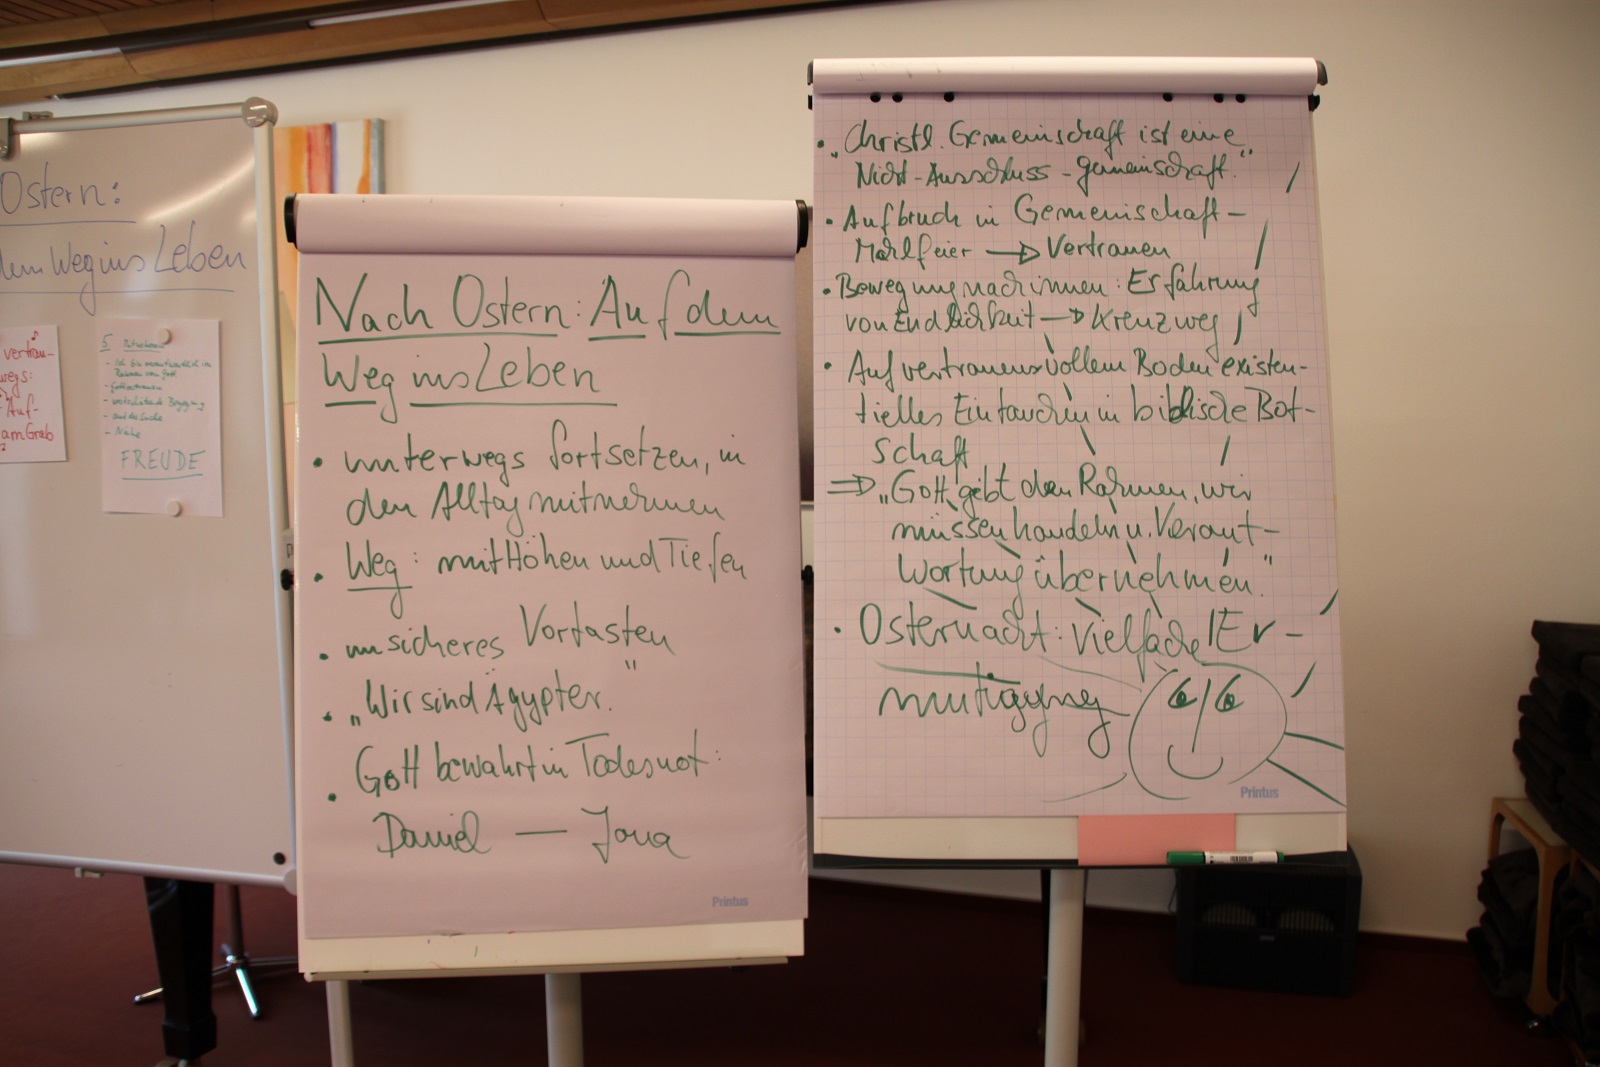 Ostern:
dem Weg ins Leben
vertrau-
wegs:
Auf-
am Grab
5
- Nähe
FREUDE
Nach Ostern: Auf dem
Weg ins Leben
• unterwegs fortsetzen, in
den Alltag mitnehmen
• Weg: mit Höhen und Tiefen
• unsicheres Vortasten
• „Wir sind Ägypter."
• Gott bewahrt in Todesnot:
Daniel — Jona
Printus
• „Christl. Gemeinschaft ist eine
Nicht-Ausschluss-gemeinschaft."
• Aufbruch in Gemeinschaft –
Mahlfeier → Vertrauen
• Bewegung nach innen: Erfahrung
von Endlichkeit → Kreuzweg
• Auf vertrauensvollem Boden existen-
tielles Eintauchen in biblische Bot-
schaft
⇒ „Gott gibt den Rahmen, wir
müssen handeln u. Verant-
wortung übernehmen."
• Osternacht: vielfache Er-
mutigung
Printus